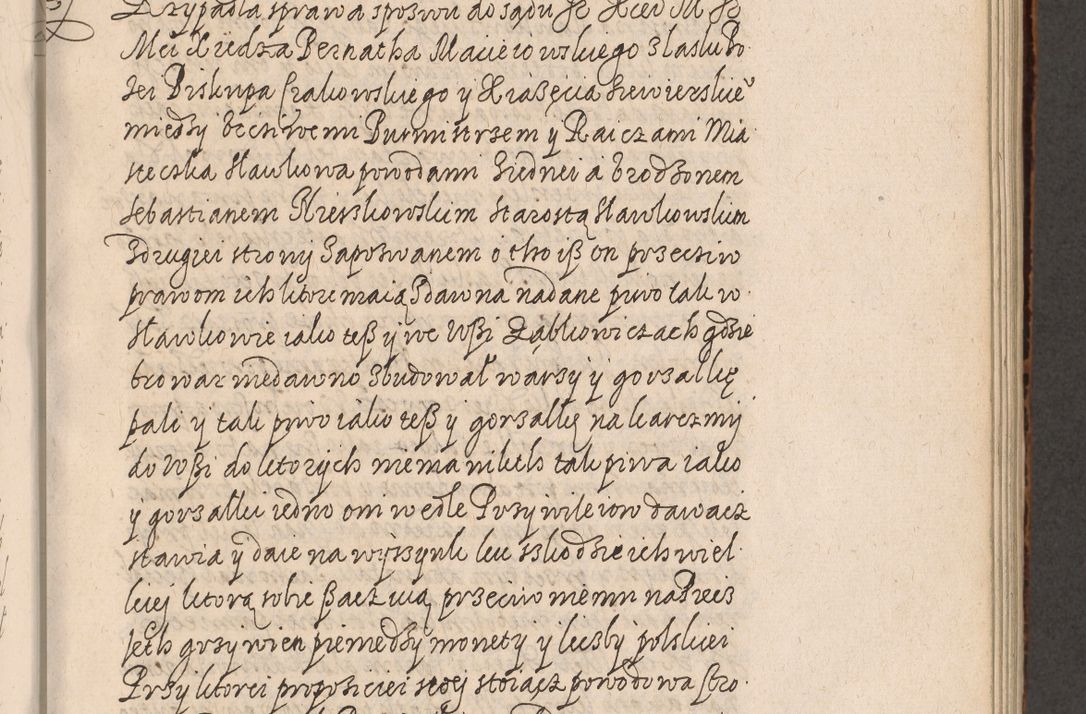 Przypadła sprawa spozwu do sądu Je Xcei M Je
Mci Xiedza Bernatha Macieiowskiego z łaski Bo
żei Biskupa Crakowskiego y Xiażęcia Siewierskie°
między Vccziwemi Burmistrzem y Raiczami Mia
steczka Sławkowa powodami z iednei a Vrodzonem
Sebastianem Starostą Sławkowskim
z drugiei strony zapozwanem o tho iß on przecziw
prawom ich ktore maią z dawna nadane piwo tak w
Sławkowie iako teß y we wßi Ząbkowiczach gdzie
browar niedawno zbudował warzy y gorzałkę
pali y tak piwo iako teß y gorzałkę na karczmy
do wßi do ktorych niema nikth tak piwa iako
y gorzałki iedno oni wedle Przywileiow dawacz
stawia y daie na wyszynk ku szkodzie ich wiel
kiej ktorą sobie ßaczuią przeciwo niemu na
seth grzywien pieniedzy monety y liczby polskiei
Przy ktorei propositiei swej stoiącz powodowa stro